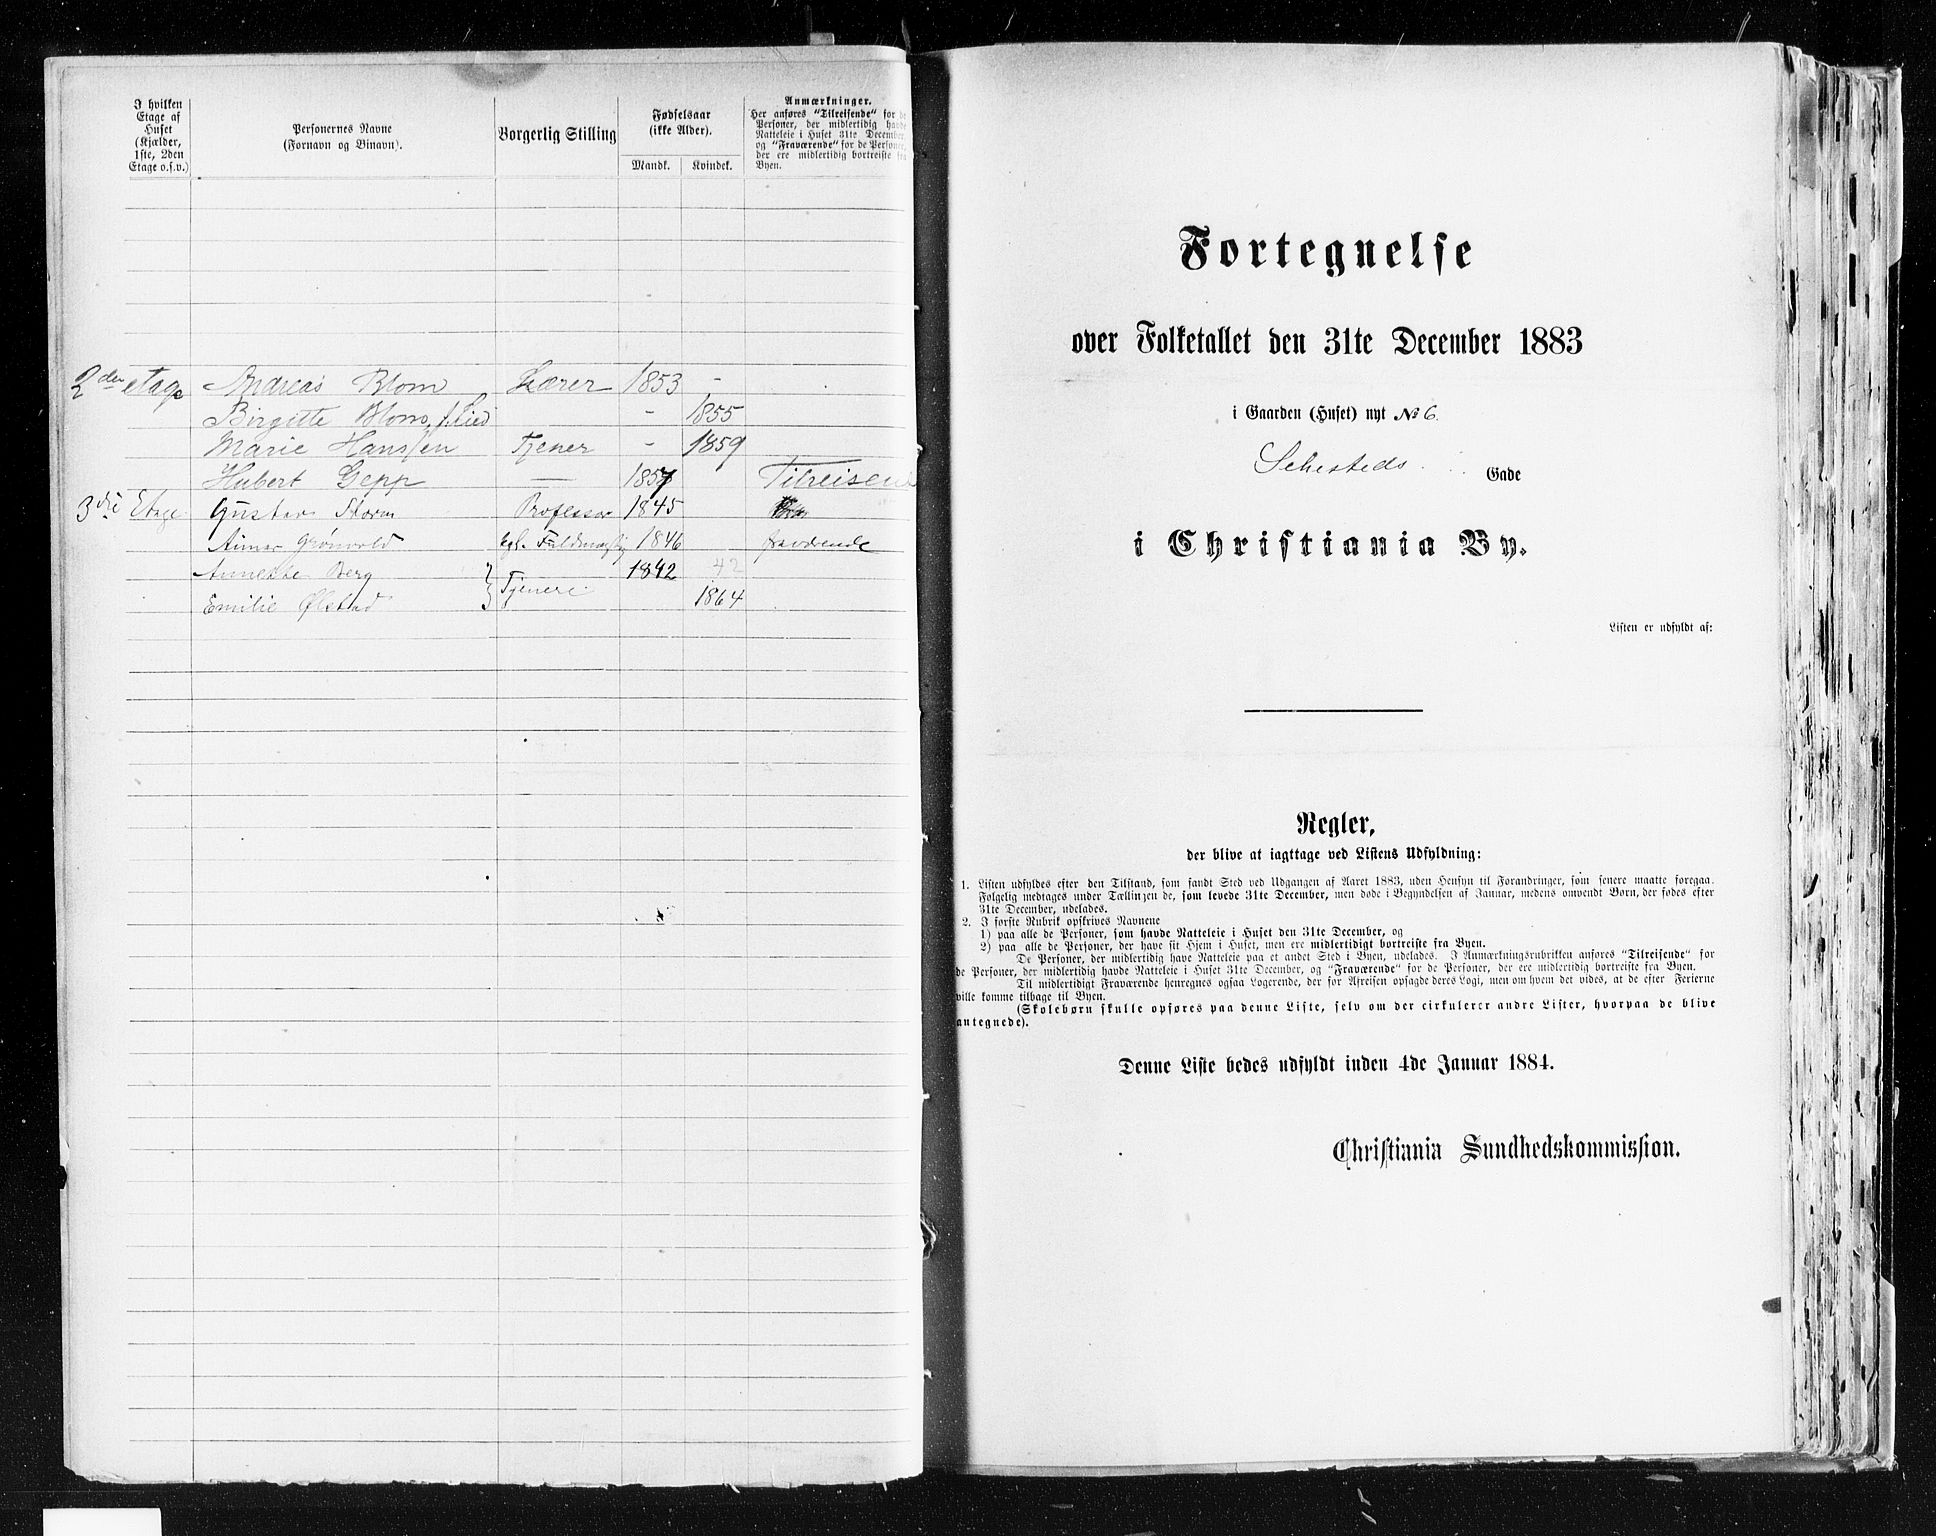 I hvilken
Etage af
Huset
(Kjælder,
1ste, 2den
Etage o.s.v.)
Personernes Navne
(Fornavn og Binavn).
Borgerlig Stilling
Fødselsaar
(ikke Alder).
Mandk. Kvindek.
Anmærkninger.
Her anføres "Tilreisende" for de
Personer, der midlertidig havde
Natteleie i Huset 31te December,
og "Fraværende" for de Personer,
der ere midlertidig bortreiste fra
Byen.
2den etage Andreas Blom Lærer 1853 -
Birgitte Blom, f. Lied - 1855
Marie Hanssen Tjener - 1859
Hubert Gepp — 1857 Tilreisend
3die Etage Gustav Storm Professor 1845
Aimar Grönvold kgl. Fuldmægtig 1846 fraværende
Annette Berg } Tjenere 1842 42
Emilie Ølstad 1864
Fortegnelse
over Folketallet den 31te December 1883
i Gaarden (Huset) nyt No 6.
Sehesteds Gade
i Christiania By.
Listen er udfyldt af:
Regler,
der blive at iagttage ved Listens Udfyldning:
1. Listen udfyldes efter den Tilstand, som fandt Sted ved Udgangen af Aaret 1883, uden Hensyn til Forandringer, som senere maatte foregaa.
Følgelig medtages under Tællingen de, som levede 31te December, men døde i Begyndelsen af Januar, medens omvendt Børn, der fødes efter
31te December, udelades.
2. I første Rubrik opskrives Navnene
1) paa alle de Personer, som havde Natteleie i Huset den 31te December, og
2) paa alle de Personer, der have sit Hjem i Huset, men ere midlertidigt bortreiste fra Byen.
De Personer, der midlertidig have Natteleie paa et andet Sted i Byen, udelades. I Anmærkningsrubrikken anføres "Tilreisende" for
de Personer, der midlertidig havde Natteleie i Huset 31te December, og "Fraværende" for de Personer, der ere midlertidig bortreiste fra Byen.
Til midlertidigt Fraværende henregnes ogsaa Logerende, der før Afreisen opsagde deres Logi, men om hvem det vides, at de efter Ferierne
ville komme tilbage til Byen.
(Skolebørn skulle opføres paa denne Liste, selv om der cirkulerer andre Lister, hvorpaa de blive
antegnede).
Denne Liste bedes udfyldt inden 4de Januar 1884.
Christiania Sundhedskommission.